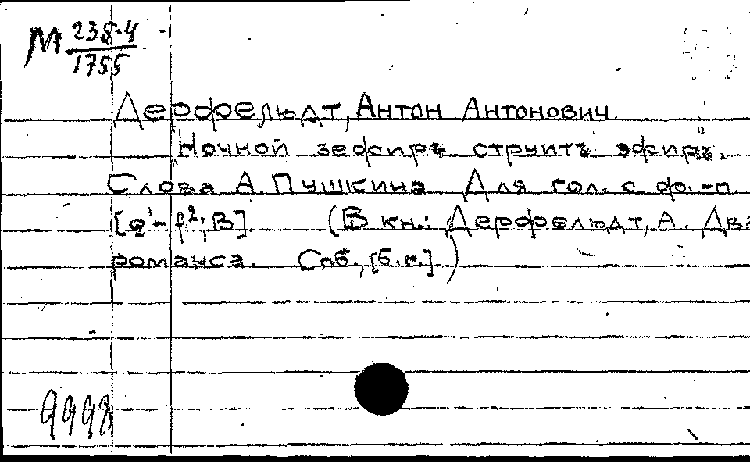 М 238-4
1755
Дерфельдт, Антон Антонович.
"Ночной зефиръ струитъ эфиръ".
Слова А. Пушкина Для гол. с ф.-п.
[e¹-f²; B] (В кн.: Дерфельдт, А. Два
романса. Спб., [б.г.])